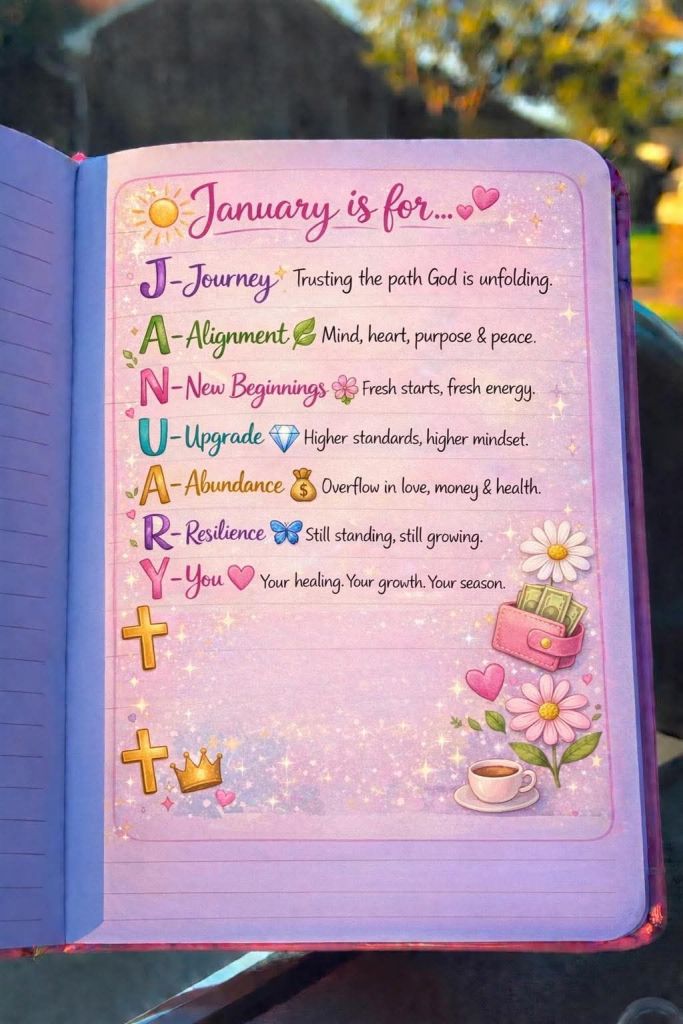 January is for...
J - Journey Trusting the path God is unfolding.
A - Alignment Mind, heart, purpose & peace.
N - New Beginnings Fresh starts, fresh energy.
U - Upgrade Higher standards, higher mindset.
A - Abundance $ Overflow in love, money & health.
R - Resilience Still standing, still growing.
Y - You Your healing. Your growth. Your season.